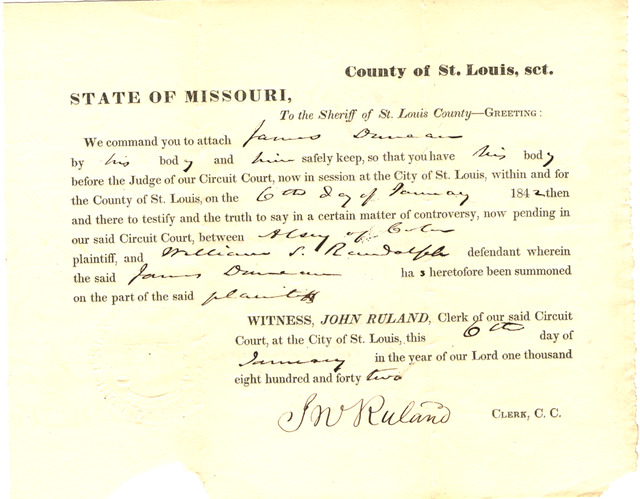 County of St. Louis, sct.
STATE OF MISSOURI,
To the Sheriff of St. Louis County—GREETING:
We command you to attach James Duncan
by his body and him safely keep, so that you have his body
before the Judge of our Circuit Court, now in session at the City of St. Louis, within and for
the County of St. Louis, on the 6th day of January 1842 then
and there to testify and the truth to say in a certain matter of controversy, now pending in
our said Circuit Court, between Alsey of Color
plaintiff, and William S. Randolph defendant wherein
the said James Duncan has heretofore been summoned
on the part of the said plaintiff
WITNESS, JOHN RULAND, Clerk of our said Circuit
Court, at the City of St. Louis, this 6th day of
January in the year of our Lord one thousand
eight hundred and forty two
J W Ruland CLERK, C. C.